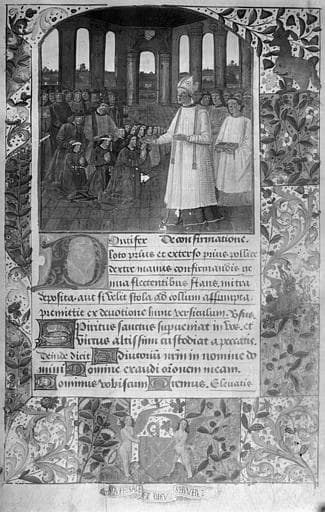 Pontifex De confirmatione.
loto prius et exterso prius pollice
dextre manus confirmandis ge
nua flectentibus stans, mitra
deposita. aut si velit stola ab collum assumpta
premittit ex devotione hunc versiculum. Vsus
Spiritus sanctus superveniat in vos. et
virtus altissimi custodiat a peccatis.
Deinde dicit Adiutorium nrm in nomine do
mini Domine exaudi orōnem meam.
Dominus vobiscum Oremus. Elevatis